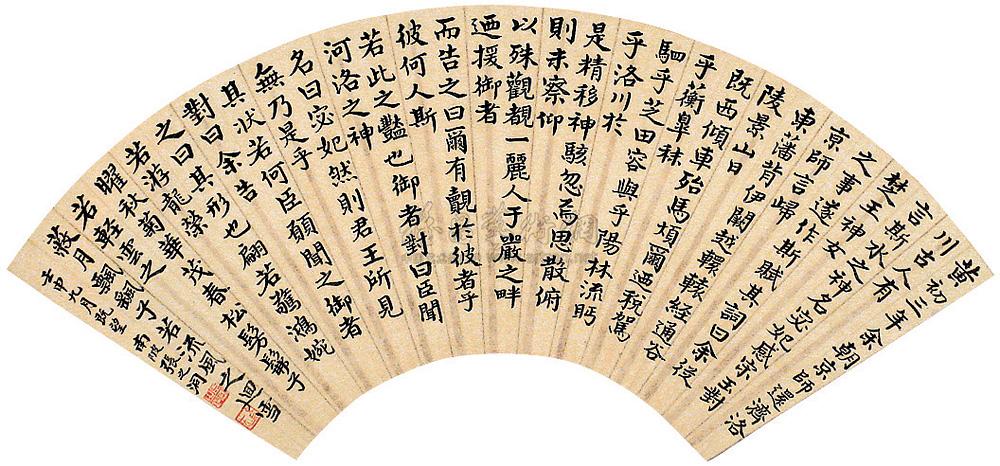 黄初三年余朝京師還濟洛
川古人有
言斯水之神名宓妃感宋玉對
楚王神女
之事遂作斯賦其詞曰余從
京師言歸
東藩背伊闕越轘轅經通谷
陵景山日
既西傾車殆馬煩爾迺稅駕
乎蘅皋秣
駟乎芝田容與乎陽林流眄
乎洛川於
是精移神駭忽焉思散俯
則未察仰
以殊觀覩一麗人于巖之畔
迺援御者
而告之曰爾有覿於彼者乎
彼何人斯
若此之豔也御者對曰臣聞
河洛之神
名曰宓妃然則君王所見
無乃是乎
其狀若何臣願聞之御者
對曰余告
之曰其形也翩若驚鴻婉
若游龍榮
曜秋菊華茂春松髣髴兮
若輕雲之
蔽月飄飄兮若流風之迴雪
壬申九月既望南皮張之洞